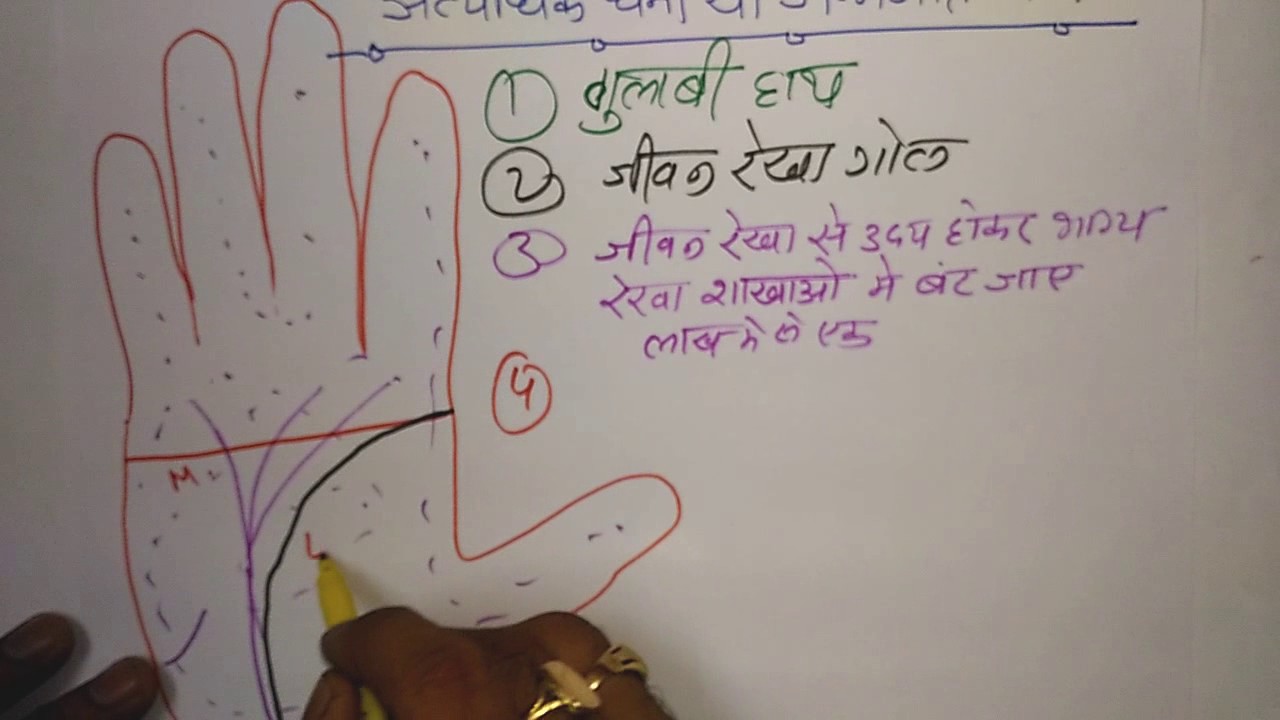 ① गुलाबी हाथ
② जीवन रेखा गोल
③ जीवन रेखा से उदय होकर भाग्य
रेखा शाखाओ मे बंट जाए
लाख मे से एक
④
M
L